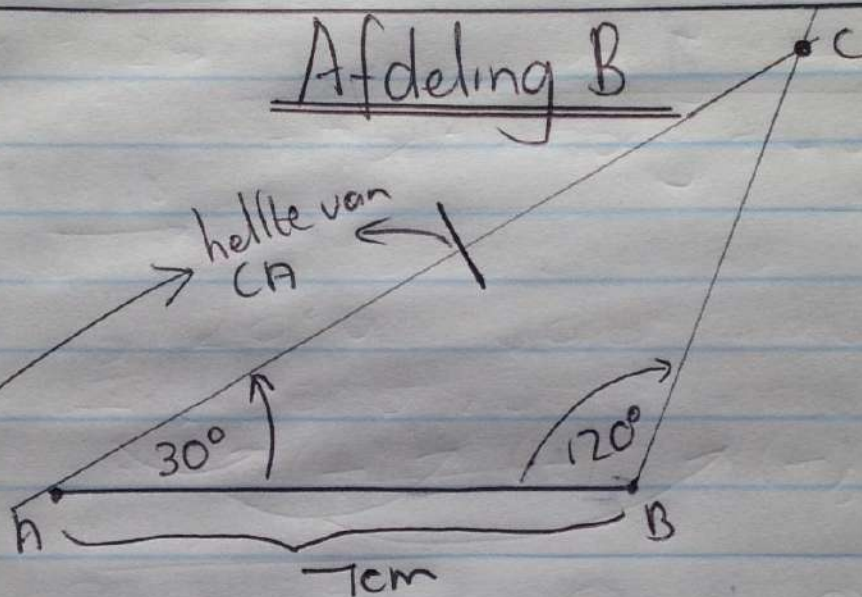 Afdeling B
C
hellte van
CA
30°
120°
A
B
7cm